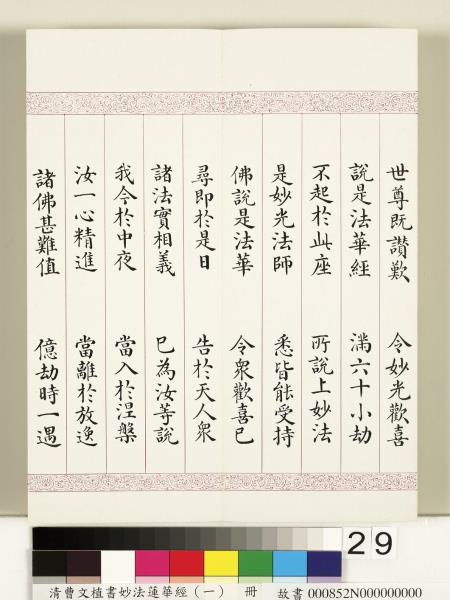 世尊既讚歎 令妙光歡喜
說是法華經 滿六十小劫
不起於此座 所說上妙法
是妙光法師 悉皆能受持
佛說是法華 令衆歡喜已
尋即於是日 告於天人衆
諸法實相義 已為汝等說
我今於中夜 當入於涅槃
汝一心精進 當離於放逸
諸佛甚難值 億劫時一遇
29
清曹文植書妙法蓮華經(一) 冊 故書 000852N000000000